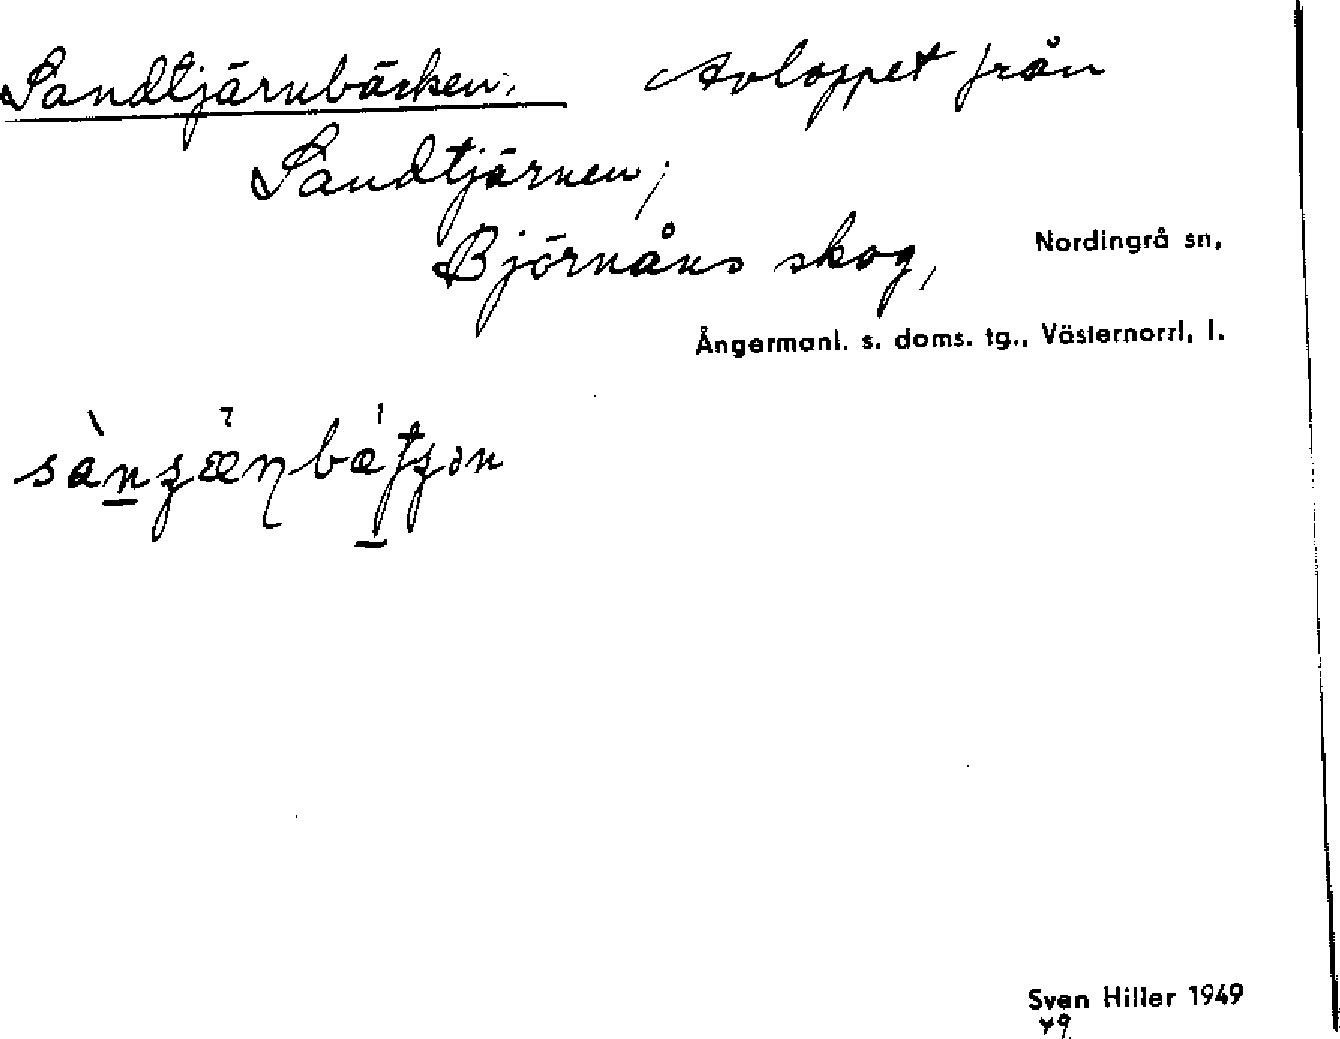 Sandtjärnbäcken. Avloppet från
Sandtjärnen,
Björnåns skog, Nordingrå sn,
Ångermanl. s. doms. tg., Västernorrl, l.
Sven Hiller 1949